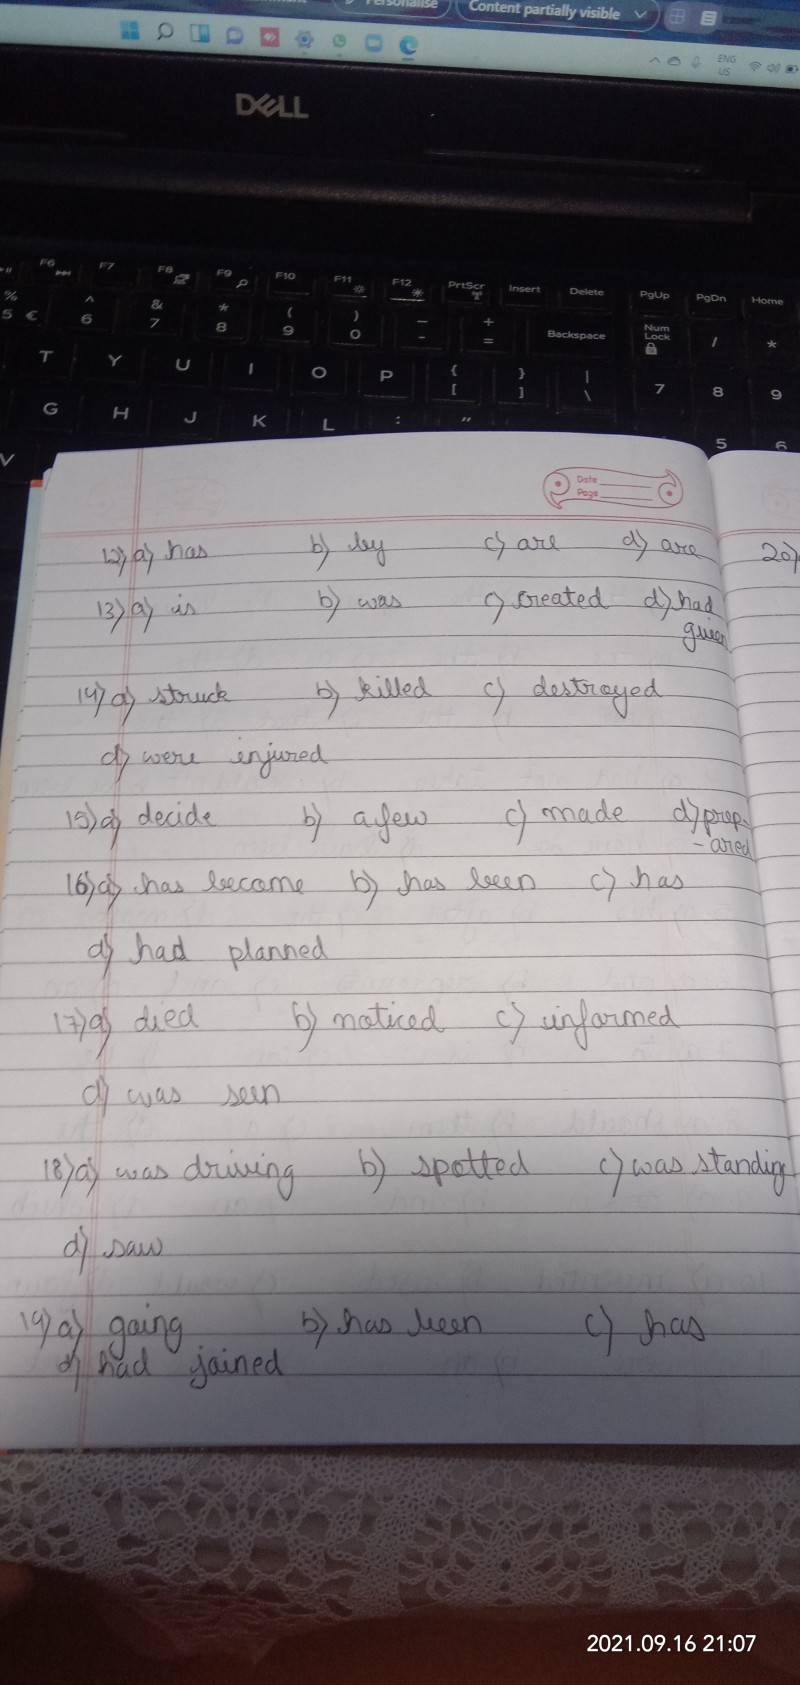 Personalise Content partially visible
ENG
US
DELL
F6 F7 F8 F9 F10 F11 F12 PrtScr Insert Delete PgUp PgDn Home
% ^ & * ( ) _ + Backspace Num Lock / *
5 € 6 7 8 9 0 - =
T Y U I O P { [ } ] | \ 7 8 9
G H J K L : " 5 6
V
Date
Page
12) a) has b) by c) are d) are 20)
13) a) is b) was c) created d) had
given
14) a) struck b) killed c) destroyed
d) were injured
15) a) decide b) a few c) made d) prep-
-ared
16) a) has become b) has been c) has
d) had planned
17) a) died b) noticed c) informed
d) was seen
18) a) was driving b) spotted c) was standing
d) saw
19) a) going b) has been c) has
d) had joined
2021.09.16 21:07